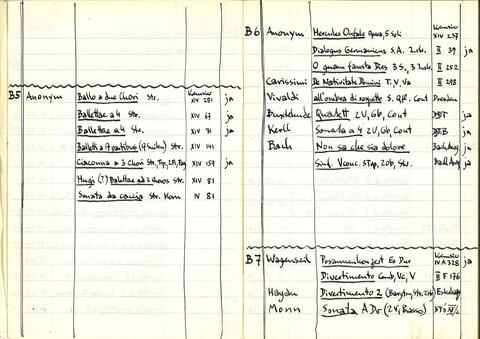 B5 Anonym Ballo a due Chori Str. Kremsier XIV 251 ja
Ballettae a 4 Str. XIV 67 ja
Ballettae a 4 Str. XIV 71 ja
Balletti a 17 partibus Str. XIV 141
Ciaconna a 3 Chori Str., Trp, 2Fl, Fag XIV 159 ja
Hugi (?) Balettae ad 2 Choros Str. XIV 81
Sonata da caccia Str. Horn IV 81
B6 Anonym Hercules Onfale Opera, 5 Soli Kremsier XIV 237
Dialogus Germanicus S.A. 2 Str. II 39 ja
O quam fausta Dies 3 S, 3 Str. II 252
Carissimi De Nativitate Domini T, V, Va II 298
Vivaldi all'ombra di sospetto S. Qfl. Cont Dresden
Buxtehude Quartett 2V, Gb, Cont ja
Kerll Sonata a 4 2V, Gb, Cont ja
Bach Non sa che sia dolore ja
ja
B7 Wagenseil Posaunenkonzert Es Dur Kremsier IV A 328 ja
Divertimento Cemb, Vc, V II F 176
Haydn Divertimento 2 (Baryton, Str, 2Hr)
Monn Sonata A Dur (2V, Basso)